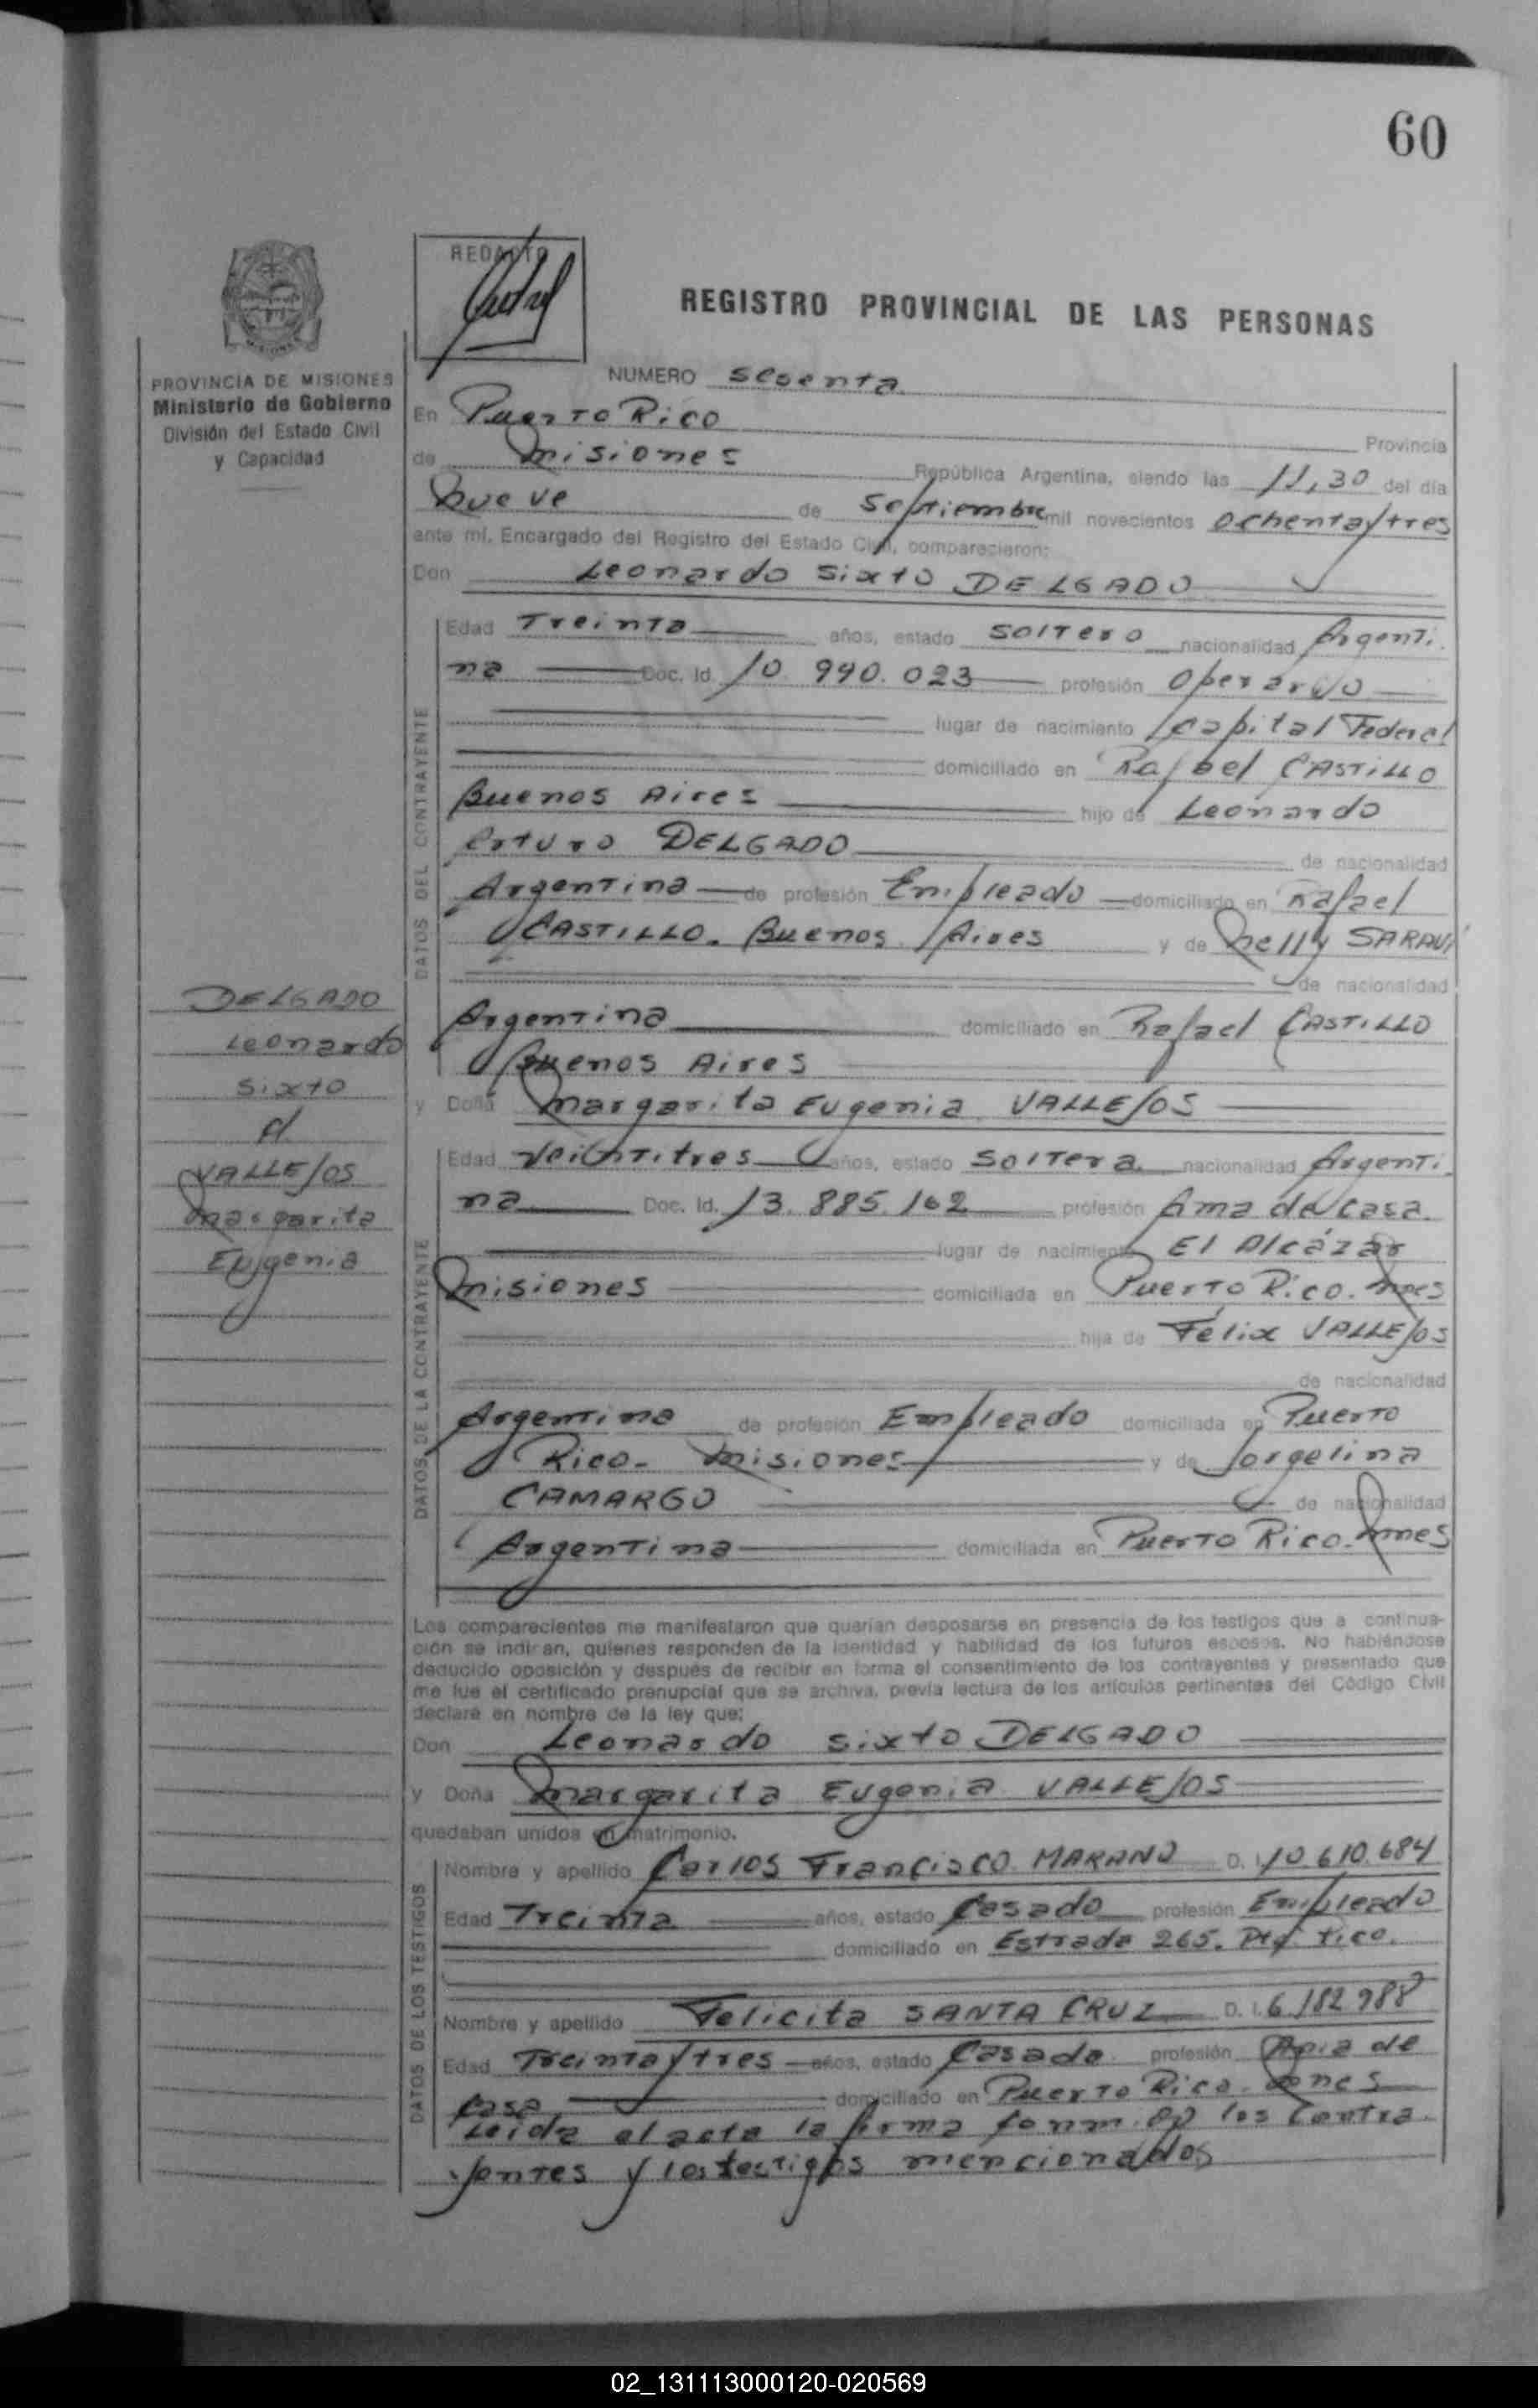 60
REDACTO
REGISTRO PROVINCIAL DE LAS PERSONAS
PROVINCIA DE MISIONES
Ministerio de Gobierno
División del Estado Civil
y Capacidad
NUMERO sesenta
En Puerto Rico
Provincia
de Misiones República Argentina, siendo las 11,30 del día
Nueve de Septiembre mil novecientos ochenta y tres
ante mí, Encargado del Registro del Estado Civil, comparecieron:
Don Leonardo Sixto DELGADO
DATOS DEL CONTRAYENTE
Edad Treinta años, estado soltero nacionalidad Argenti
na Doc. Id. 10.940.023 profesión Operario
lugar de nacimiento Capital Federal
domiciliado en Rafael CASTILLO
Buenos Aires hijo de Leonardo
Arturo DELGADO de nacionalidad
Argentina de profesión Empleado domiciliado en Rafael
CASTILLO. Buenos Aires y de Nelly SARAVI
de nacionalidad
Argentina domiciliado en Rafael CASTILLO
Buenos Aires
y Doña Margarita Eugenia VALLEJOS
DELGADO
Leonardo
Sixto
VALLEJOS
Margarita
Eugenia
DATOS DE LA CONTRAYENTE
Edad Veintitres años, estado Soltera nacionalidad Argenti
na Doc. Id. 13.885.162 profesión Ama de Casa
lugar de nacimiento El Alcázar
Misiones domiciliada en Puerto Rico. Mnes
hija de Félix VALLEJOS
de nacionalidad
Argentina de profesión Empleado domiciliada en Puerto
Rico. Misiones y de Jorgelina
CAMARGO de nacionalidad
Argentina domiciliada en Puerto Rico. Mnes
Los comparecientes me manifestaron que querían desposarse en presencia de los testigos que a continua-
ción se indican, quienes responden de la identidad y habilidad de los futuros esposos. No habiéndose
deducido oposición y después de recibir en forma el consentimiento de los contrayentes y presentado que
me fue el certificado prenupcial que se archiva, previa lectura de los artículos pertinentes del Código Civil
declaré en nombre de la ley que:
Don Leonardo Sixto DELGADO
y Doña Margarita Eugenia VALLEJOS
quedaban unidos en matrimonio.
DATOS DE LOS TESTIGOS
Nombre y apellido Carlos Francisco MARANO D. I. 10.610.684
Edad Treinta años, estado Casado profesión Empleado
domiciliado en Estrada 265. Pto. Rico.
Nombre y apellido Felicita SANTA CRUZ D. I. 6.182.988
Edad Treinta y tres años, estado Casada profesión Ama de
casa domiciliado en Puerto Rico. Mnes
Leída el acta la firma conmigo los Contra
yentes y los testigos mencionados
02_131113000120-020569